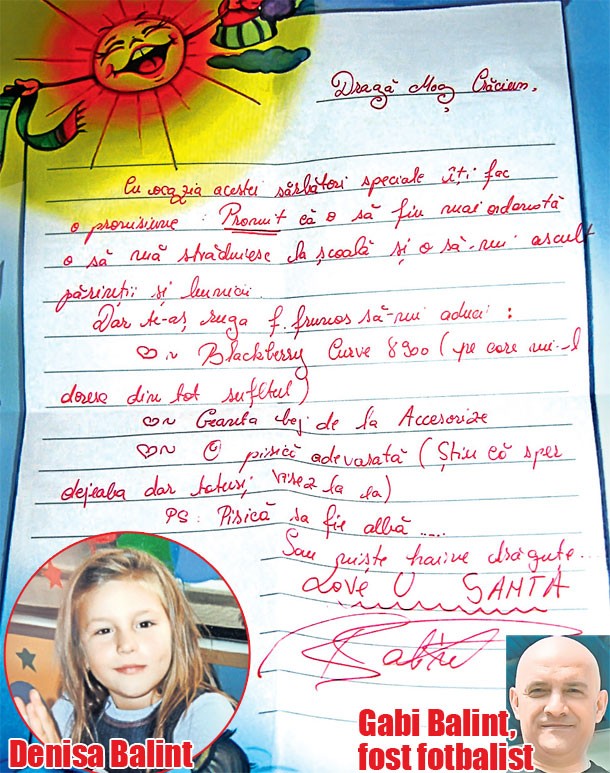 Dragă Moș Crăciun,
Cu ocazia acestei sărbători speciale îți fac
o promisiune : Promit că o să fiu mai ordonată
o să mă străduiesc la școală și o să-mi ascult
părinții și bunicii.
Dar te-aș ruga f. frumos să-mi aduci :
♡~ Blackberry Curve 8900 (pe care mi-l
doresc din tot sufletul)
♡~ Geanta bej de la Accesorize
♡~ O pisică adevarată (Știu că sper
dejeaba dar totuși visez la ea)
PS: Pisică sa fie albă .....
Sau niste haine drăguțe...
Love U SANTA
Denisa Balint
Gabi Balint,
fost fotbalist